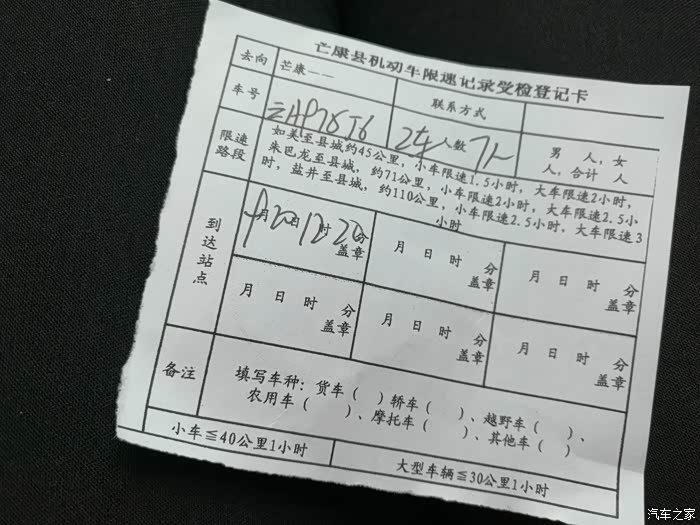 芒康县机动车限速记录受检登记卡
去向 芒康——
联系方式
车号 云AP78T6 人数 男 人，女 人，合计 人
限速路段 如美至县城约45公里，小车限速1.5小时，大车限速2小时，
朱巴龙至县城，约71公里，小车限速2小时，大车限速2.5小
时，盐井至县城，约110公里，小车限速2.5小时，大车限速3
小时
到达站点
9月20日12时20分 盖章
月 日 时 分 盖章
月 日 时 分 盖章
月 日 时 分 盖章
月 日 时 分 盖章
月 日 时 分 盖章
备注 填写车种：货车（ ）轿车（ ）、越野车（ ）、
农用车（ ）、摩托车（ ）、其他车（ ）
小车≦40公里1小时
大型车辆≦30公里1小时
汽车之家